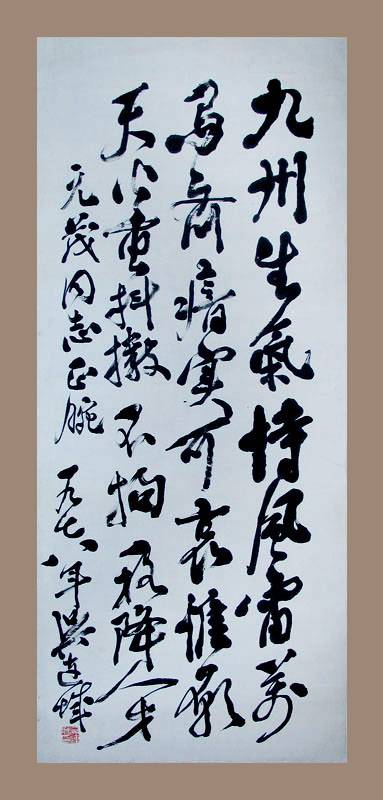 九州生氣恃風雷萬
馬齊瘖實可哀惟願
天公重抖擻不拘一格降人才
元茂同志正腕 一九七八年吳連城